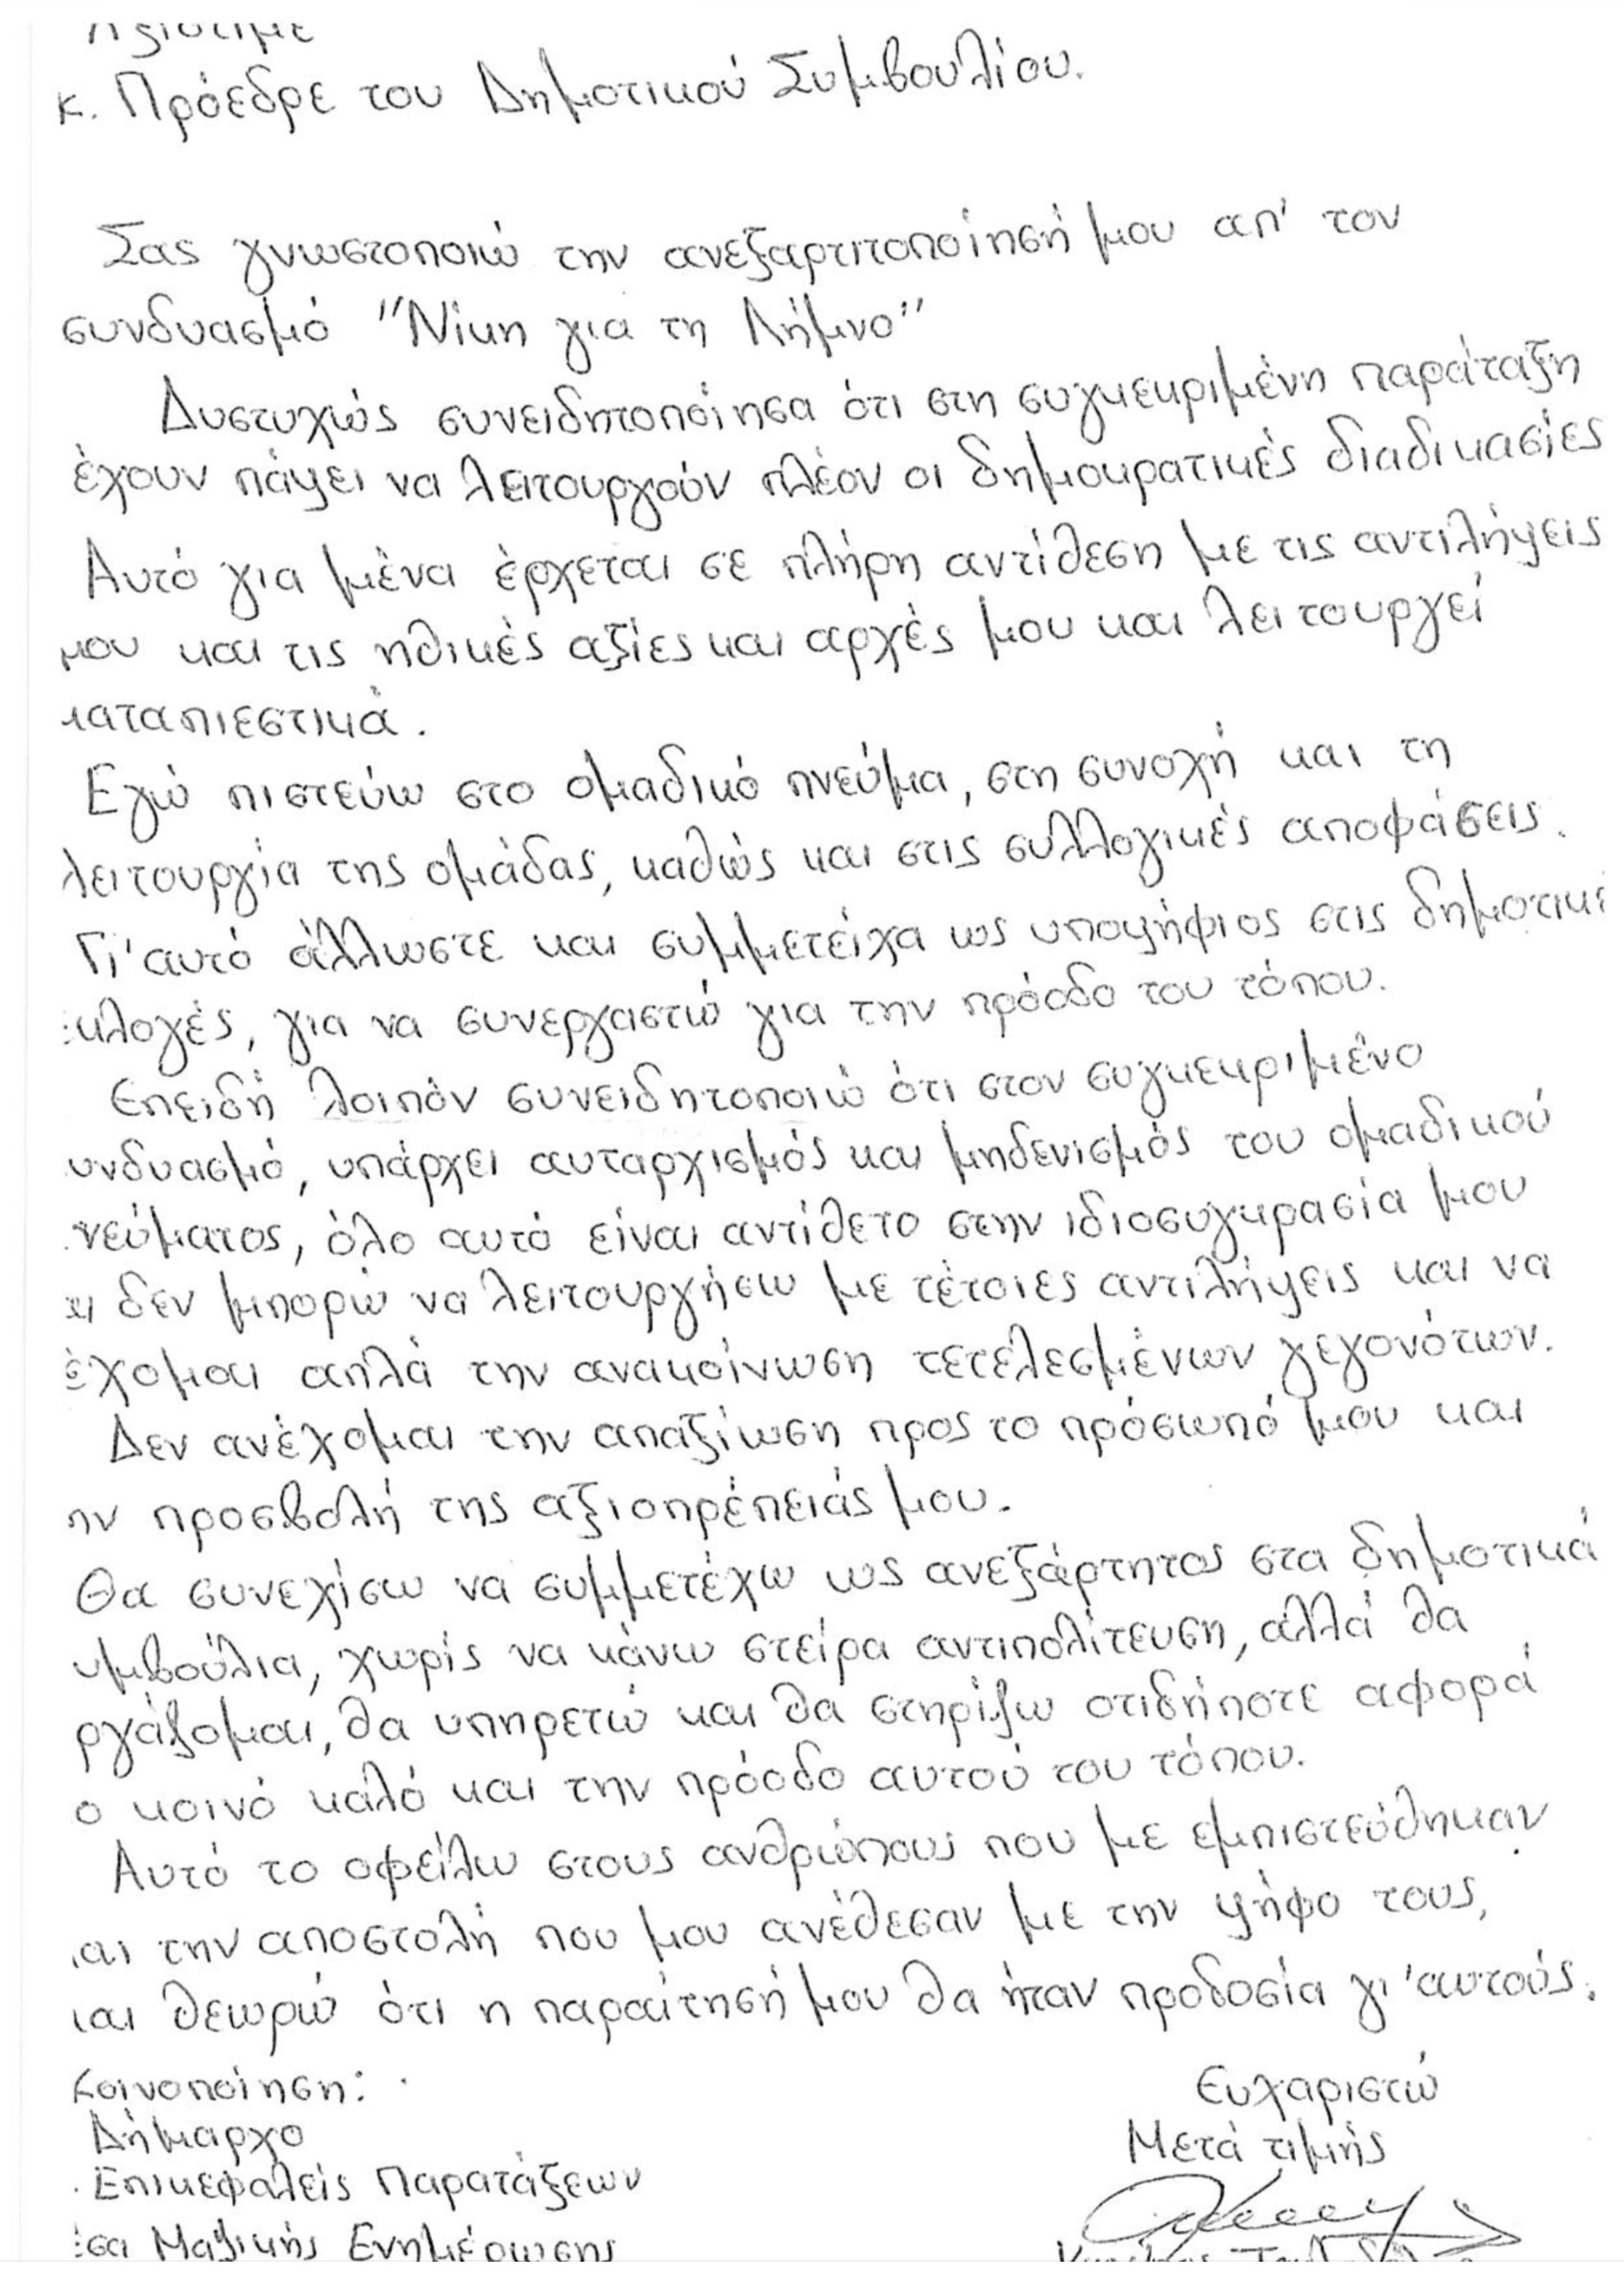 Αξιότιμε
κ. Πρόεδρε του Δημοτικού Συμβουλίου.
Σας γνωστοποιώ την ανεξαρτιτοποίησή μου απ' τον
συνδυασμό "Νίκη για τη Λήμνο"
Δυστυχώς συνειδητοποίησα ότι στη συγκεκριμένη παράταξη
έχουν πάψει να λειτουργούν πλέον οι δημοκρατικές διαδικασίες
Αυτό για μένα έρχεται σε πλήρη αντίθεση με τις αντιλήψεις
μου και τις ηθικές αξίες και αρχές μου και λειτουργεί
καταπιεστικά.
Εγώ πιστεύω στο ομαδικό πνεύμα, στη συνοχή και τη
λειτουργία της ομάδας, καθώς και στις συλλογικές αποφάσεις.
Γι'αυτό άλλωστε και συμμετείχα ως υποψήφιος στις δημοτικέ
κλογές, για να συνεργαστώ για την πρόοδο του τόπου.
Επειδή λοιπόν συνειδητοποιώ ότι στον συγκεκριμένο
υνδυασμό, υπάρχει αυταρχισμός και μηδενισμός του ομαδικού
νεύματος, όλο αυτό είναι αντίθετο στην ιδιοσυγκρασία μου
αι δεν μπορώ να λειτουργήσω με τέτοιες αντιλήψεις και να
έχομαι απλά την ανακοίνωση τετελεσμένων γεγονότων.
Δεν ανέχομαι την απαξίωση προς το πρόσωπό μου και
ην προσβολή της αξιοπρέπειάς μου.
Θα συνεχίσω να συμμετέχω ως ανεξάρτητος στα δημοτικά
υμβούλια, χωρίς να κάνω στείρα αντιπολίτευση, αλλά θα
ργάζομαι, θα υπηρετώ και θα στηρίζω οτιδήποτε αφορά
ο κοινό καλό και την πρόοδο αυτού του τόπου.
Αυτό το οφείλω στους ανθρώπους που με εμπιστεύθηκαν
αι την αποστολή που μου ανέθεσαν με την ψήφο τους,
και θεωρώ ότι η παραίτησή μου θα ήταν προδοσία γι'αυτούς.
Κοινοποίηση:
Δήμαρχο
Επικεφαλείς Παρατάξεων
έσα Μαζικής Ενημέρωσης
Ευχαριστώ
Μετά τιμής